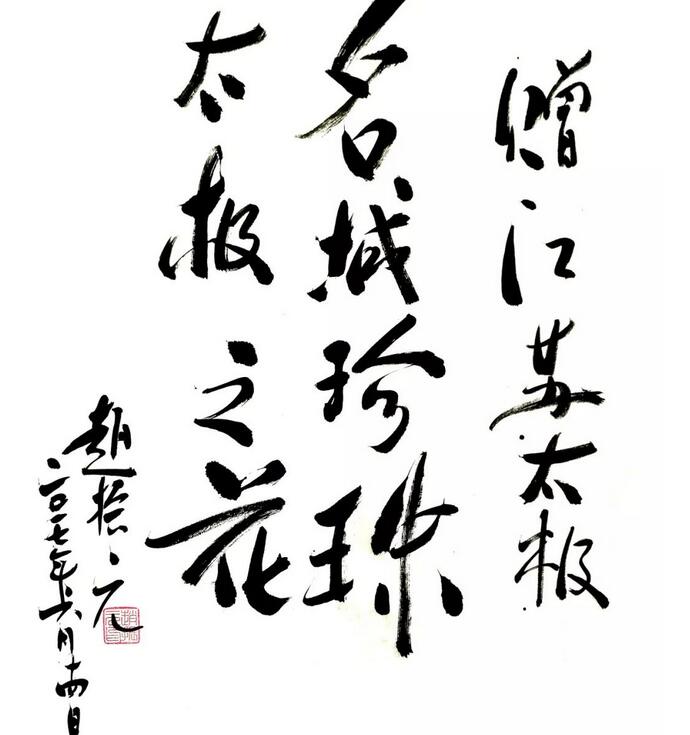 赠江苏太极
名城珍珠
太极之花
趙元
二〇一七年六月十四日